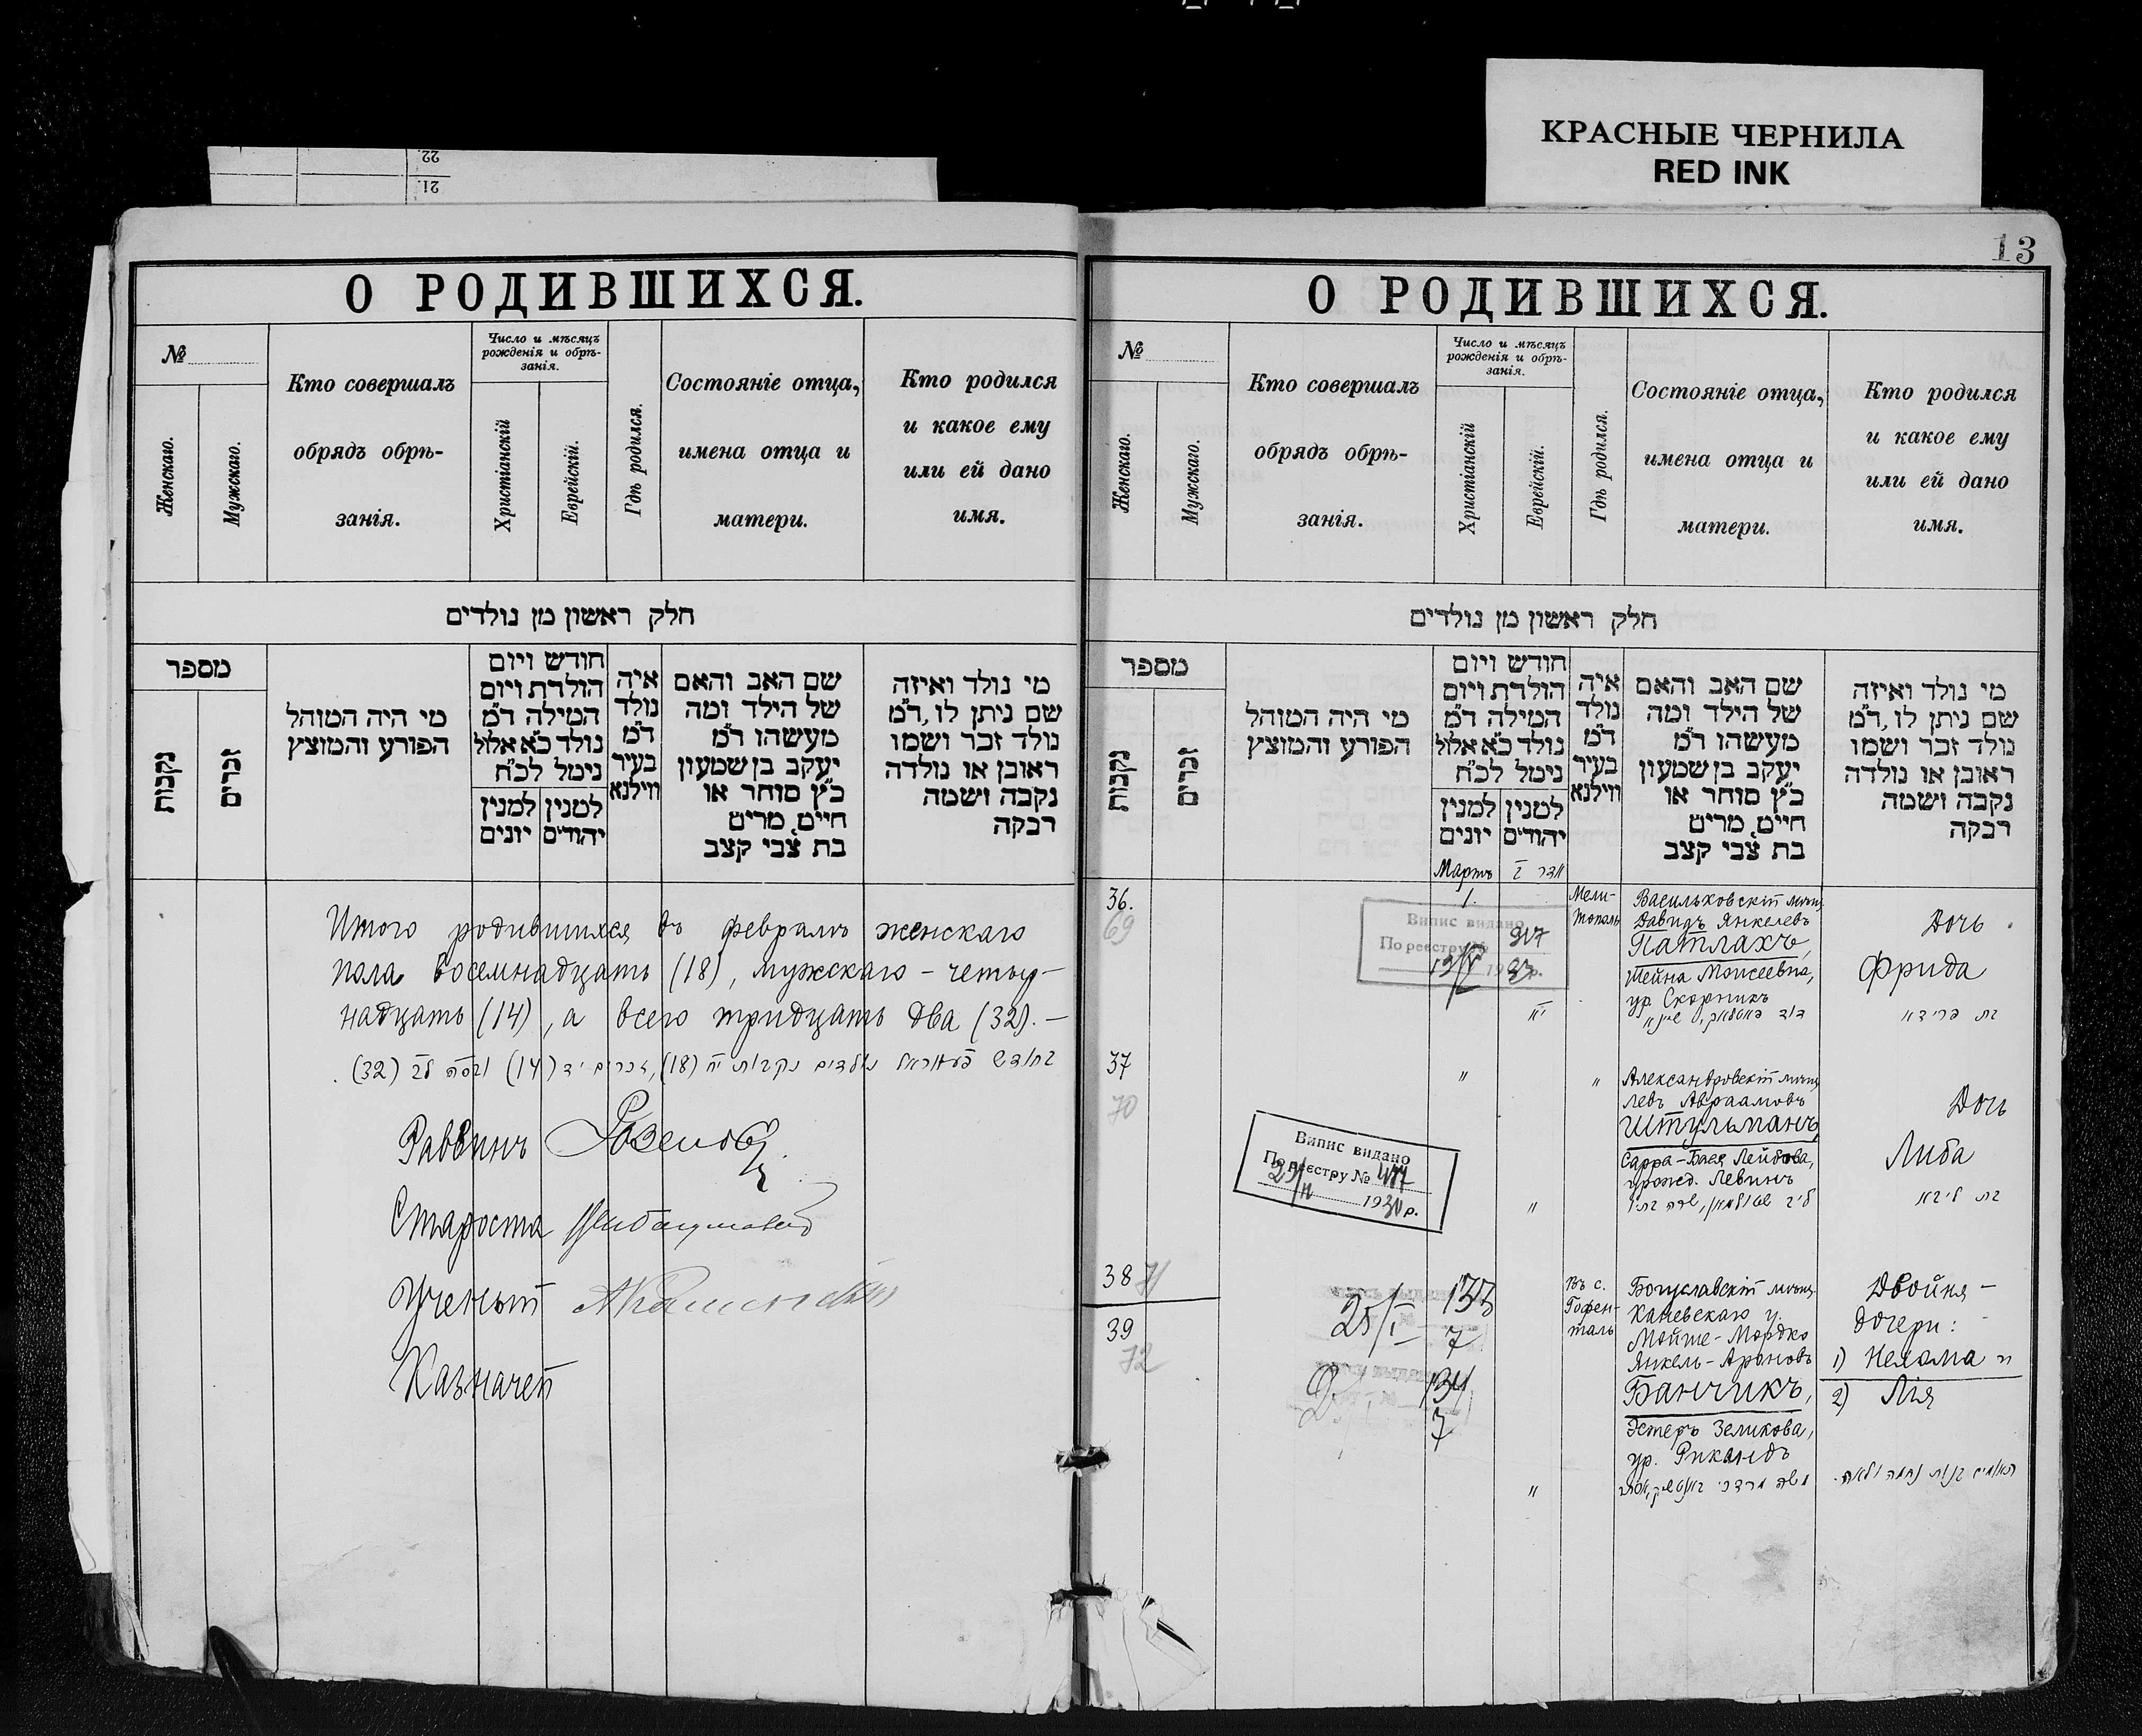 КРАСНЫЕ ЧЕРНИЛА
RED INK
22.
21.
О РОДИВШИХСЯ.
№
Женскаго.
Мужскаго.
Кто совершалъ
обрядъ обрѣ-
занія.
Число и мѣсяцъ
рожденія и обрѣ-
занія.
Христіанскій
Еврейскій.
Гдѣ родился.
Состояніе отца,
имена отца и
матери.
Кто родился
и какое ему
или ей дано
имя.
חלק ראשון מן נולדים
מספר
נקבות
זכרים
מי היה המוהל
הפורע והמוצץ
חודש ויום
הולדת ויום
המילה ד״מ
נולד כ״א אלול
נימל לכ״ח
למנין יונים
למנין יהודים
איה
נולד
ד״מ
בעיר
ווילנא
שם האב והאם
של הילד ומה
מעשהו ד״מ
יעקב בן שמעון
כ״ץ סוחר או
חייט, מרים
בת צבי קצב
מי נולד ואיזה
שם ניתן לו, ד״מ
נולד זכר ושמו
ראובן או נולדה
נקבה ושמה
רבקה
Итого родившихся въ февралѣ женскаго
пола восемнадцать (18), мужскаго - четыр-
надцать (14), а всего тридцать два (32). —
בחודש פעווראל נולדים נקבות י״ח (18), זכרים י״ד (14) ובסה ל״ב (32).
Раввинъ
Староста
Ученый
Казначей
13
О РОДИВШИХСЯ.
№
Женскаго.
Мужскаго.
Кто совершалъ
обрядъ обрѣ-
занія.
Число и мѣсяцъ
рожденія и обрѣ-
занія.
Христіанскій
Еврейскій.
Гдѣ родился.
Состояніе отца,
имена отца и
матери.
Кто родился
и какое ему
или ей дано
имя.
חלק ראשון מן נולדים
מספר
נקבות
זכרים
מי היה המוהל
הפורע והמוצץ
חודש ויום
הולדת ויום
המילה ד״מ
נולד כ״א אלול
נימל לכ״ח
למנין יונים
למנין יהודים
איה
נולד
ד״מ
בעיר
ווילנא
שם האב והאם
של הילד ומה
מעשהו ד״מ
יעקב בן שמעון
כ״ץ סוחר או
חייט, מרים
בת צבי קצב
מי נולד ואיזה
שם ניתן לו, ד״מ
נולד זכר ושמו
ראובן או נולדה
נקבה ושמה
רבקה
Мартъ
אדר
36.
69
1.
Випис видано
По реестру №
317
Мели-
тополь
Васильковскій мѣщ.
Давидъ Янкелевъ
Патлахъ,
Шейна Моисеевна,
ур. Скорникъ
Дочь
Фрида
בת פרידא
37
70
"
"
Випис видано
По реестру №
193 р.
"
Александровскій мѣщ.
Левъ Авраамовъ
Штульманъ,
Сарра-Бася Лейбова,
урожд. Левинъ
Дочь
Либа
בת ליבא
38 71
39
72
25/I
133
7
134
7
"
Въ с.
Гофен-
таль
Богуславскій мѣщ.
Каневскаго у.
Мойше-Мордко
Янкель-Ароновъ
Банчикъ,
Эстеръ Зеликова,
ур.
Двойня -
дочери:
1) Нехама и
2) Лія